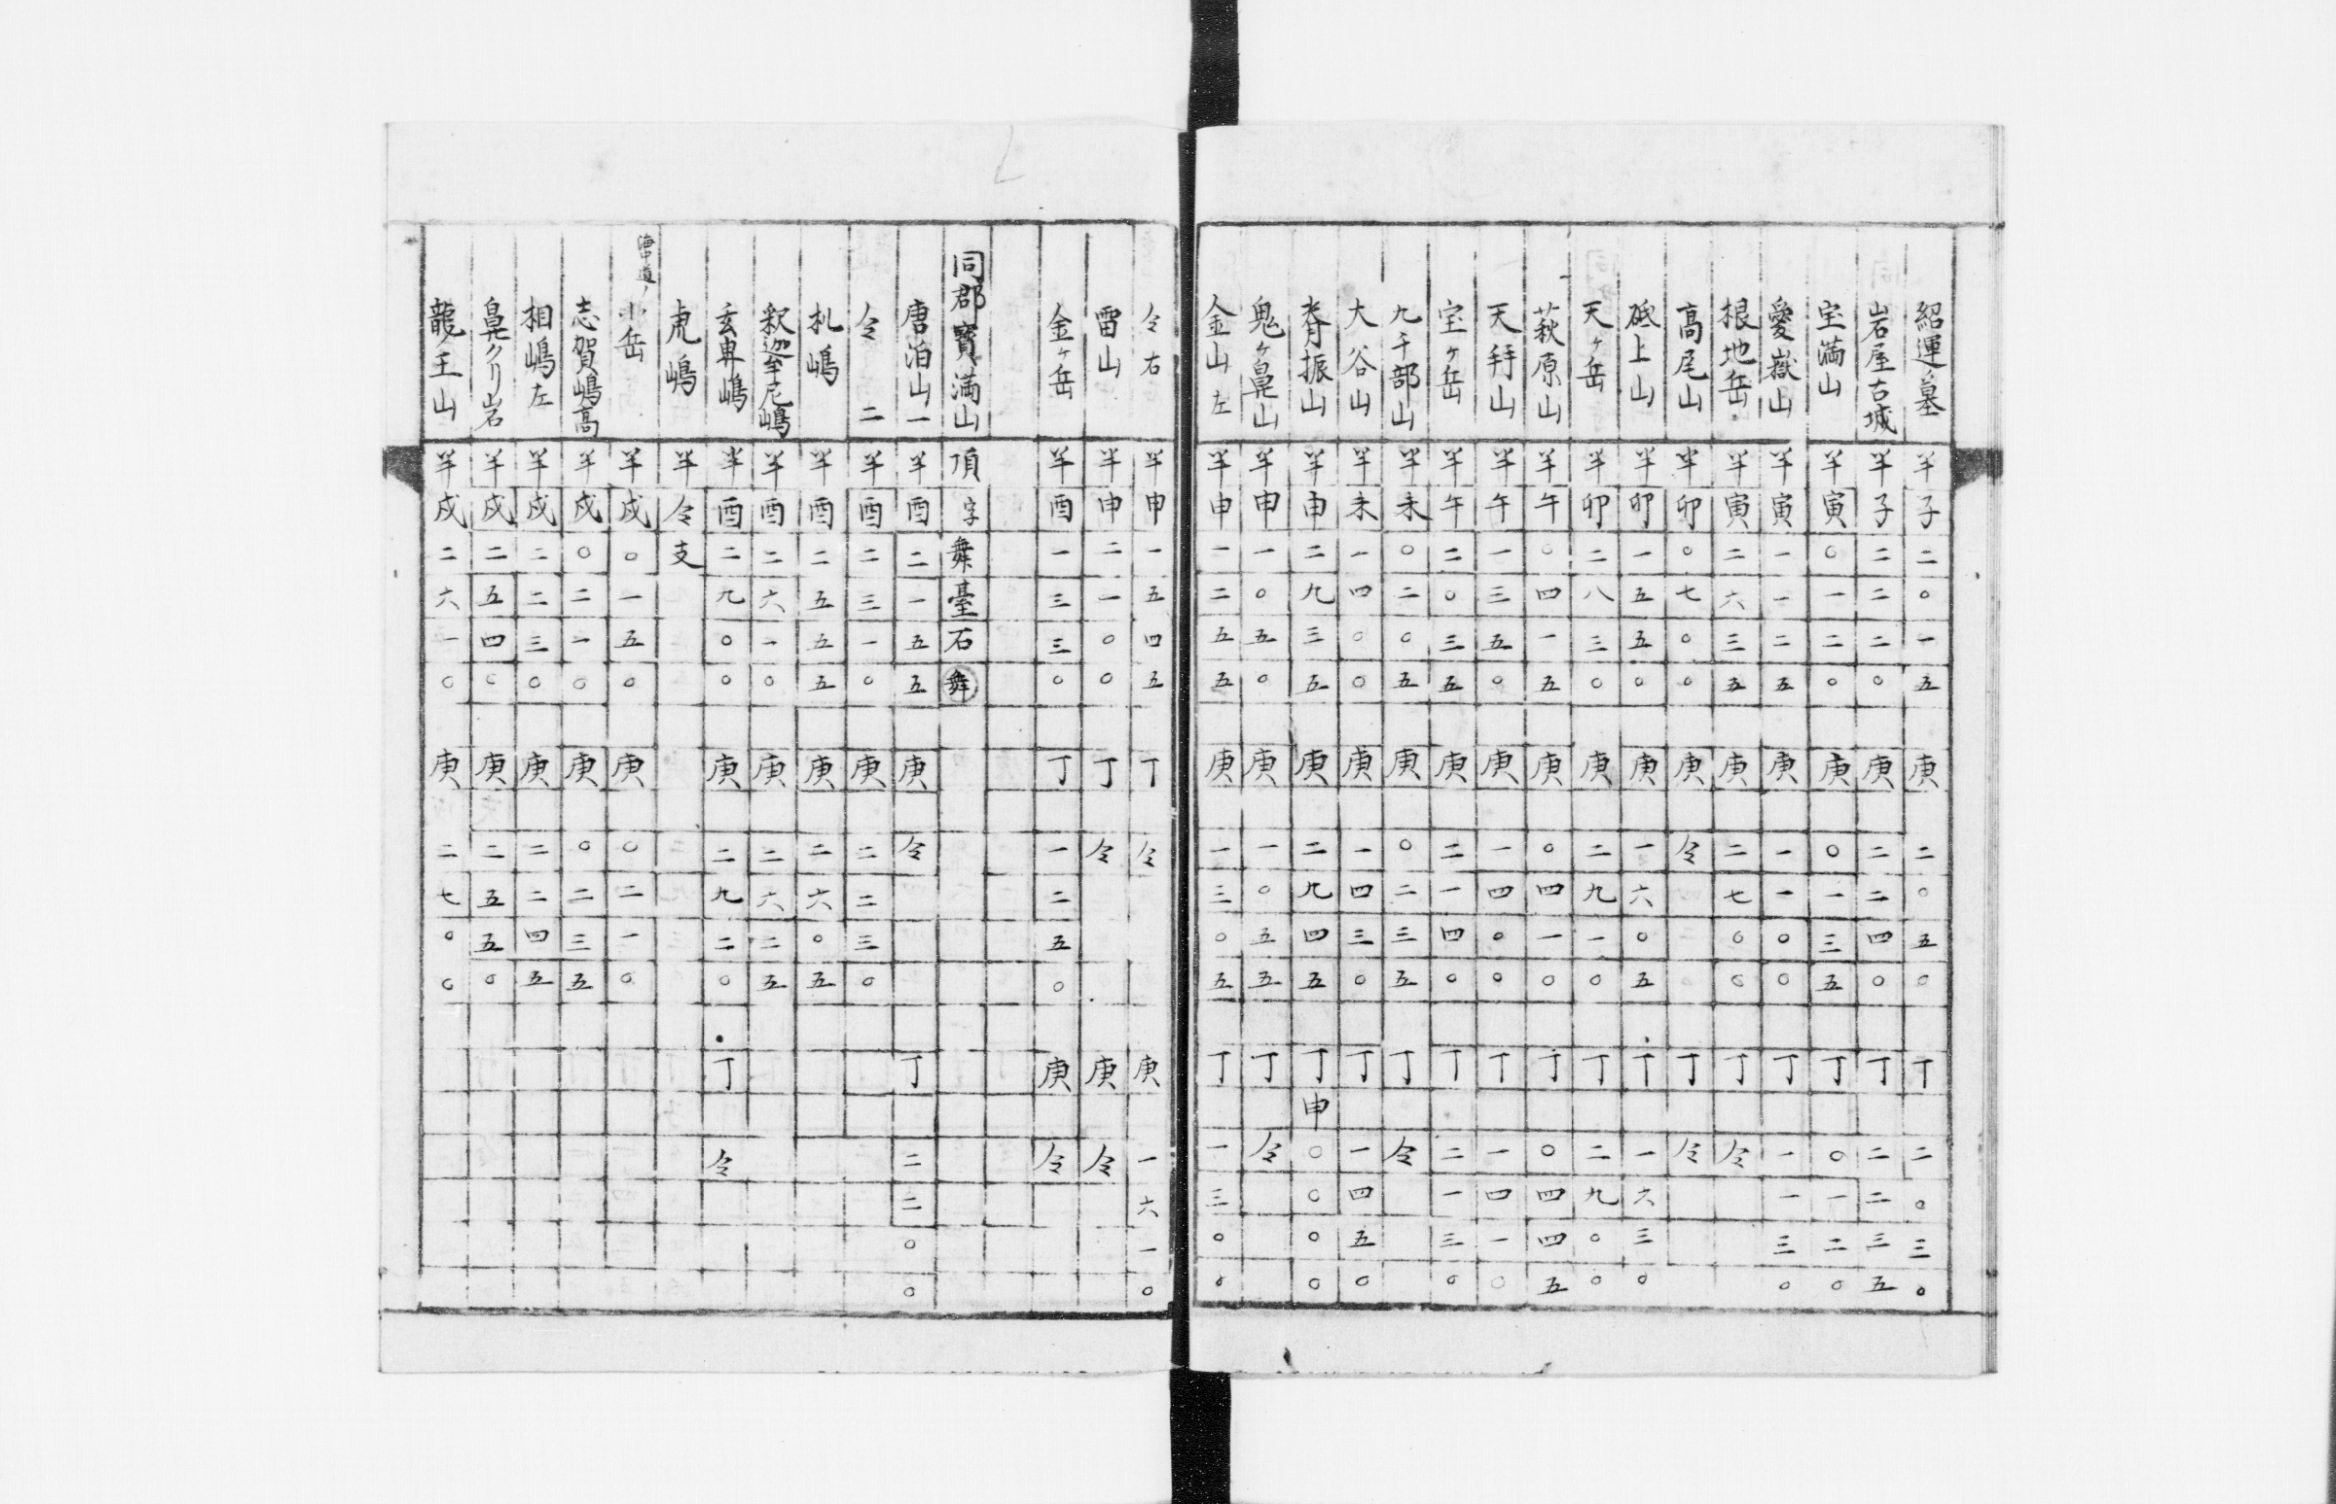 紹運ノ墓 半子二〇一五 庚 二〇五〇 丁 二〇三〇
岩屋古城 半子二二二〇 庚 二二四〇 丁 二二三五
宝満山 半寅〇一二〇 庚 〇一三五 丁 〇一二〇
愛嶽山 半寅一一二五 庚 一一〇〇 丁 一一三〇
根地岳 半寅二六三五 庚 二七〇〇 丁 仝
高尾山 半卯〇七〇〇 庚 仝 丁 仝
砥上山 半卯一五五〇 庚 一六〇五 丁 一六三〇
天ヶ岳 半卯二八三〇 庚 二九一〇 丁 二九〇〇
萩原山 半午〇四一五 庚 〇四一〇 丁 〇四四五
天拝山 半午一三五〇 庚 一四〇〇 丁 一四一〇
宝ヶ岳 半午二〇三五 庚 二一四〇 丁 二一三〇
九千部山 半未〇二〇五 庚 〇二三五 丁 仝
大谷山 半未一四〇〇 庚 一四三〇 丁 一四五〇
脊振山 半申二九三五 庚 二九四五 丁申〇〇〇〇
鬼ヶ鼻山 半申一〇五〇 庚 一〇五五 丁 仝
金山左 半申一二五五 庚 一三〇五 丁 一三〇〇
仝右 半申一五四五 丁 仝 庚 一六一〇
雷山 半申二一〇〇 丁 仝 庚 仝
金ヶ岳 半酉一三三〇 丁 一二五〇 庚 仝
同郡寳満山 頂字舞臺石 舞
唐泊山一 半酉二一五五 庚 仝 丁 二二〇〇
仝 二 半酉二三一〇 庚 二二三〇
札嶋 半酉二五五五 庚 二六〇五
釈迦牟尼嶋 半酉二六一〇 庚 二六二五
玄界嶋 半酉二九〇〇 庚 二九二〇 丁 仝
虎嶋 半仝支
海中道ノ小岳 半戌〇一五〇 庚 〇二一〇
志賀嶋高 半戌〇二一〇 庚 〇二三五
相嶋左 半戌二二三〇 庚 二二四五
鼻クリ岩 半戌二五四〇 庚 二五五〇
龍王山 半戌二六一〇 庚 二七〇〇